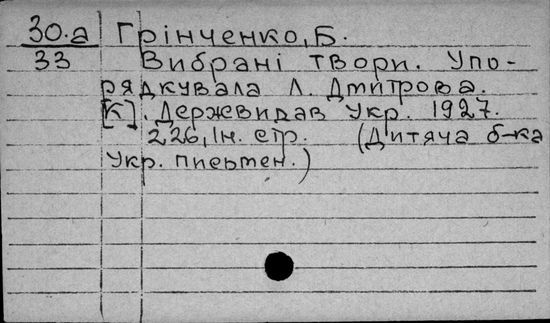 30.а Грінченко, Б.
33 Вибрані твори. Упо-
рядкувала Л. Дмитрова.
[К]. Державидав Укр. 1927.
226, Ін. стр. (Дитяча б-ка
Укр. письмен.)